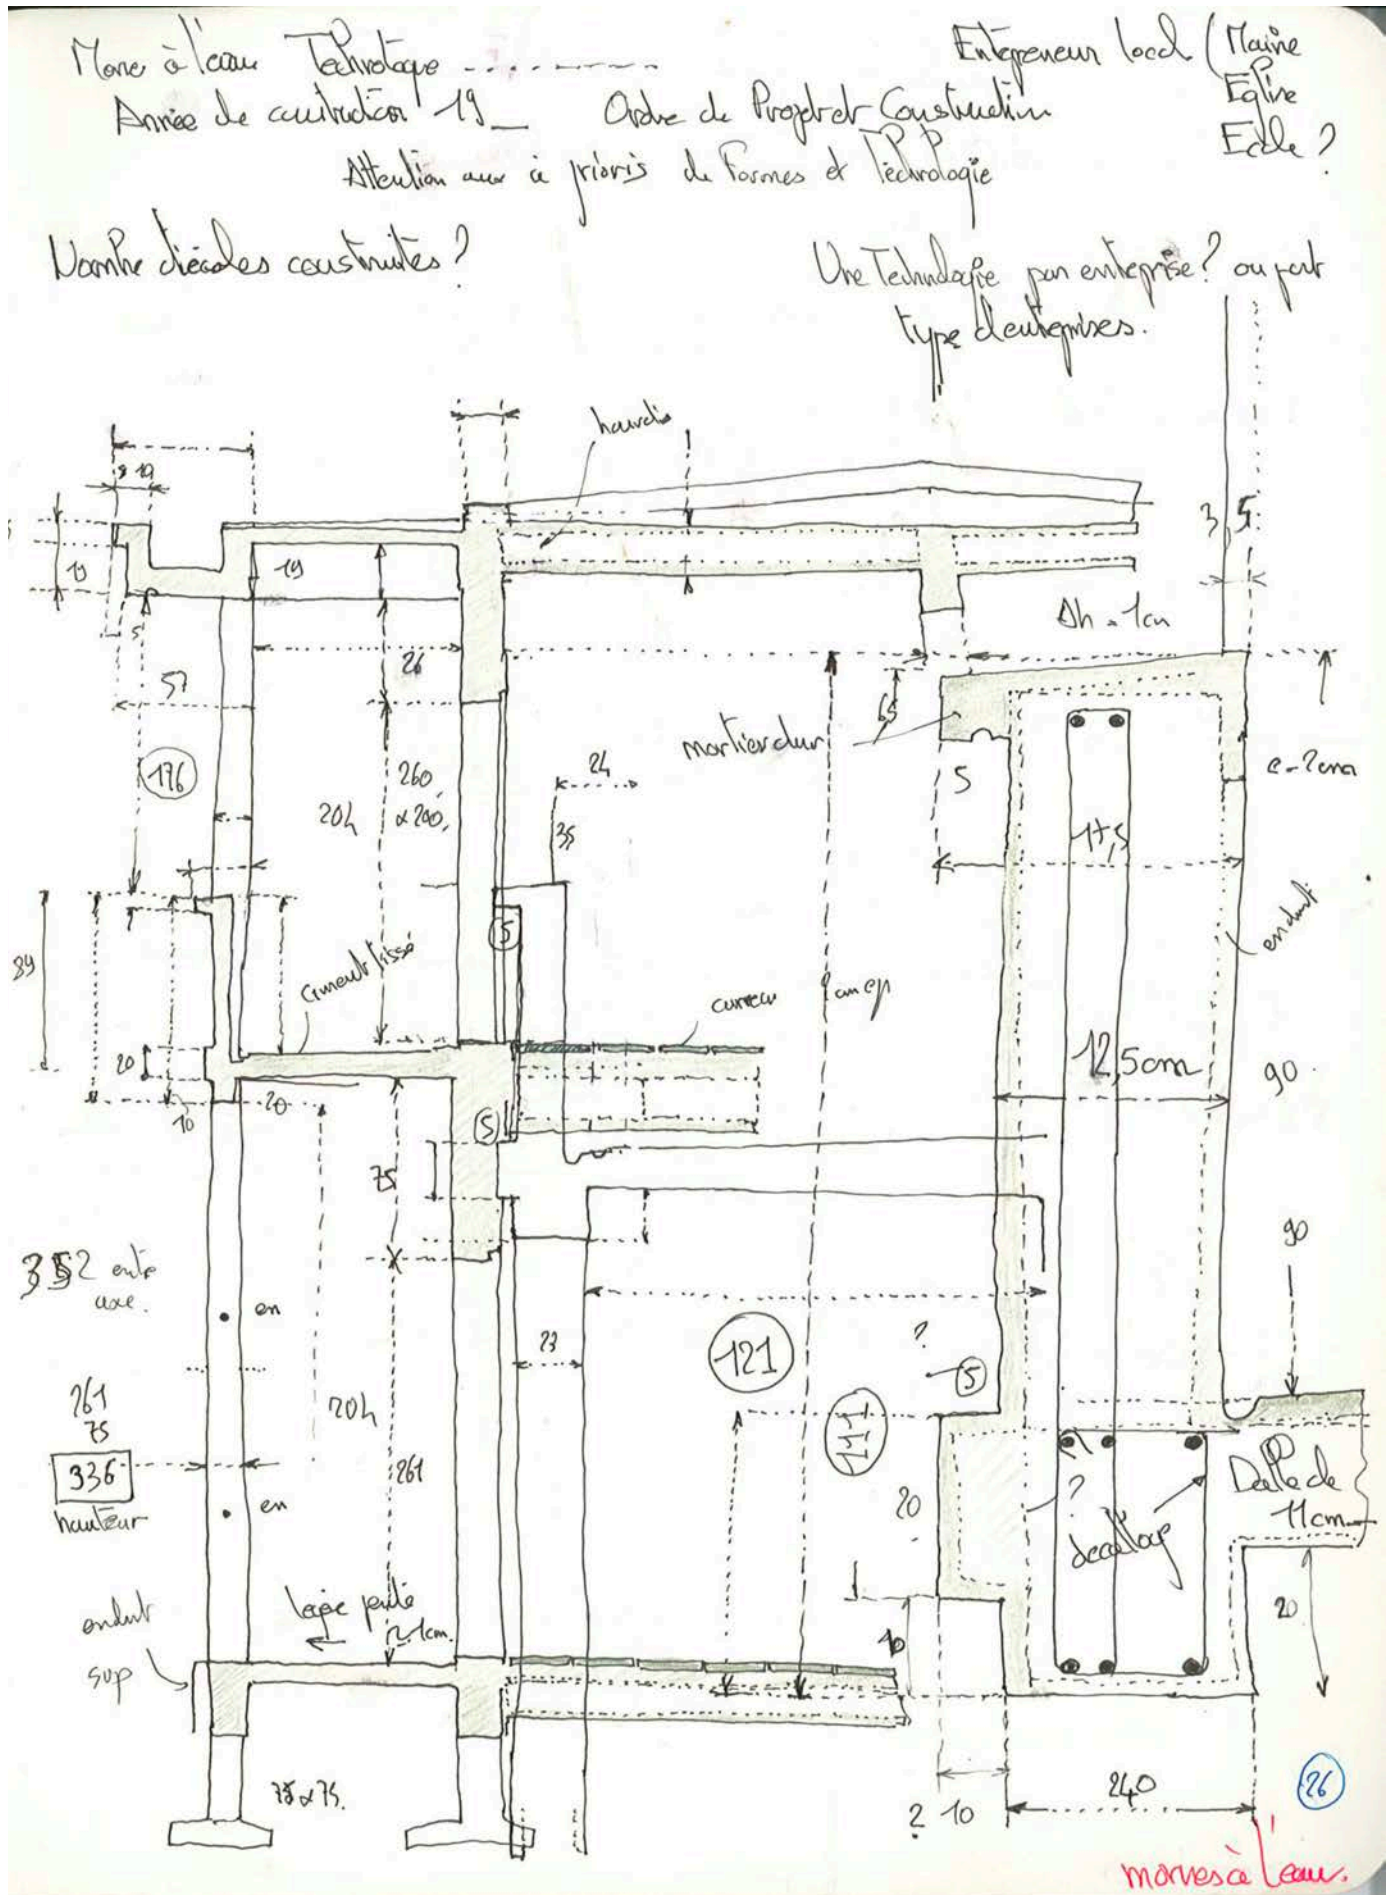 Morne à l'eau Technologie
Entrepreneur local (Mairie
Eglise
Ecole ?
Année de construction 19_ Ordre de Projet et Construction
TPP
Attention aux à prioris de Formes et Technologie
Nombre d'écoles construites ?
Une Technologie par entreprise ? ou par
type d'entreprises.
hourdis
19
19
5
57
26
3,5
Δh = 1cm
65
mortier dur
5
e = 2cm
176
260
204
24
35
17,5
enduit
89
ciment lissé
5
carreau
1 cm ep
20
10
20
12,5cm
90
5
75
90
352 entre
axe.
en
23
121
?
5
211
261
75
336
hauteur
204
261
en
20
?
Dalle de
11cm
enduit
sup
loggia pente
1cm.
10
20
75 x 75.
? 10
240
26
mornes à l'eau.